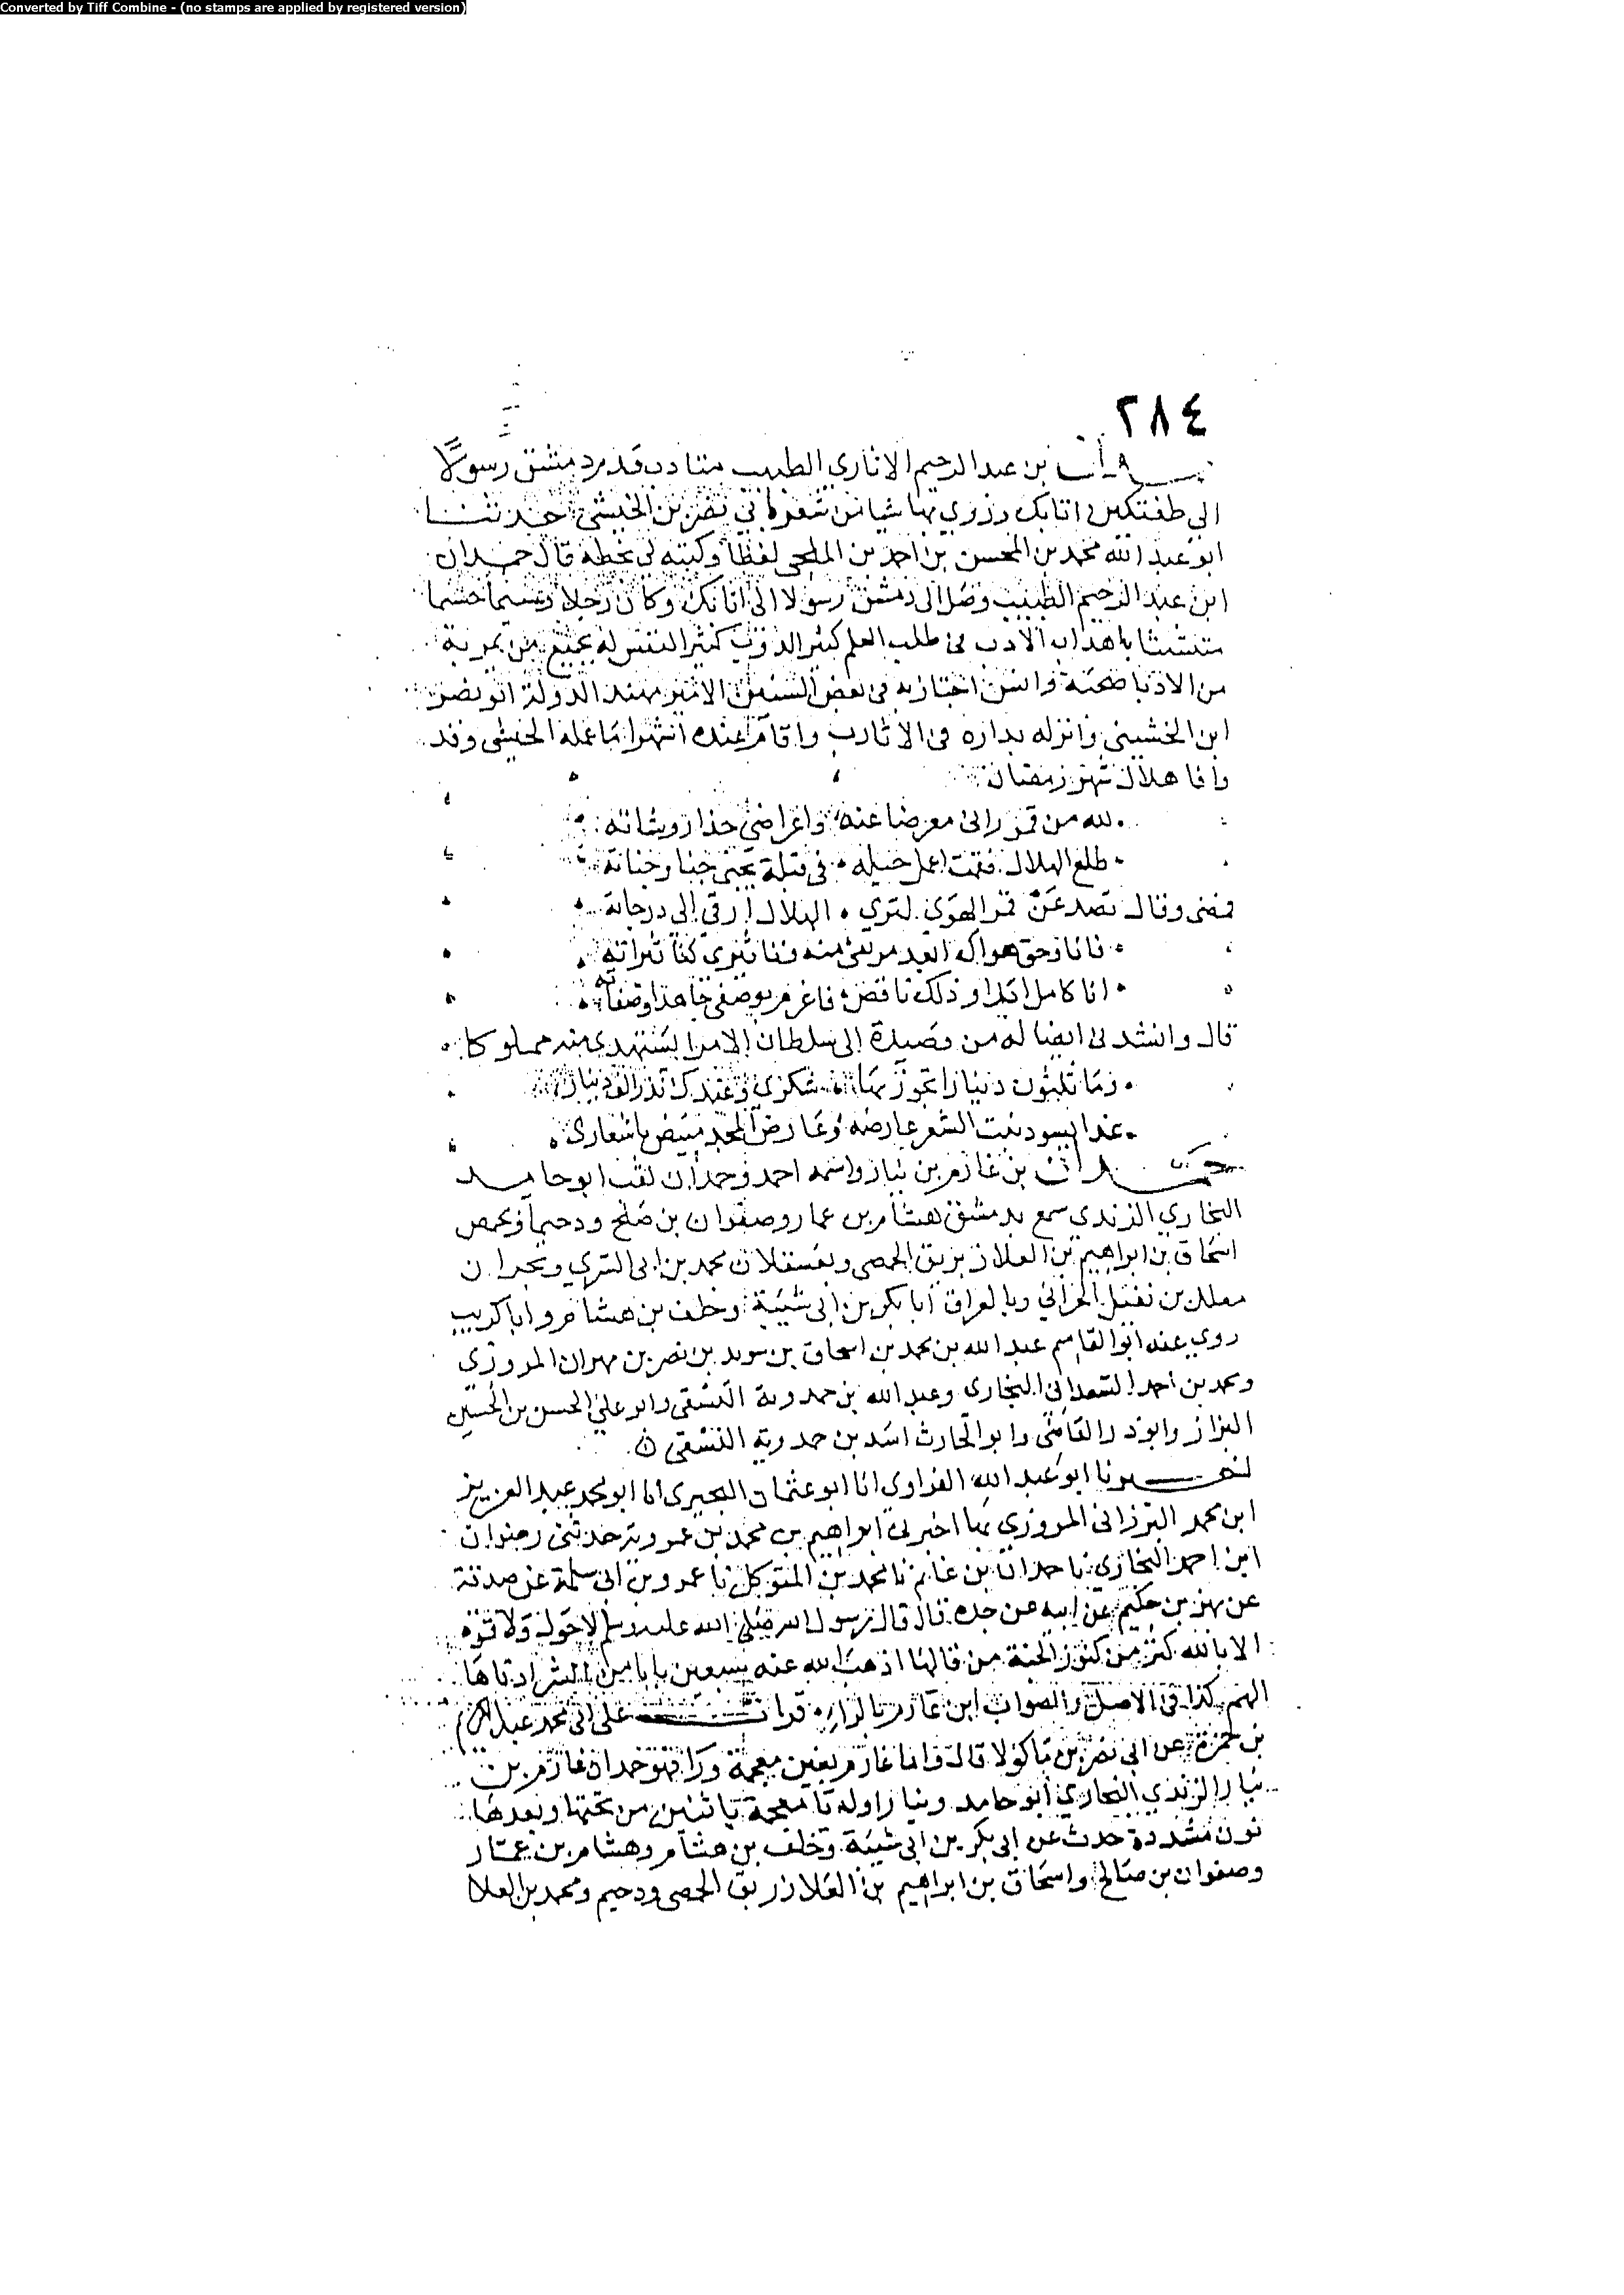 Converted by Tiff Combine - (no stamps are applied by registered version)
٢٨٤
بن عبد الرحيم الاثاري الطبيب متادب قدم دمشق رسولا
الى طغتكين اتابك وروي بها شيا من شعره ابي نصر بن الخيشي حدثنا
ابو عبد الله محمد بن المحسن بن احمد بن الملحي لفظا وكتبه لي بخطه قال حمدان
ابن عبد الرحيم الطبيب وصل الى دمشق رسولا الى اتابك وكان رجلا وسيما
متشبثا باهداب الادب في طلب العلم كثير كثير
من الادبا صحبة في بعض السنين الامير مهند الدولة ابو نصر
ابن الخشيني وانزله بداره في الاثارب واقام عنده اشهرا مما عمله الخيشي وقد
وافا هلال شهر رمضان
لله من قمر راني معرضا عنه واعراضي حذار وشاته
طلع الهلال فقمت اعمل حيله في قبلة
فمضى وقال تصد عن قمر الهوى لترى الهلال ارقى الى درجاته
فانا وحق هواك ابعد مرتقى منه
انا كامل ابدا وذلك ناقض
قال وانشد لي ايضا له من قصيدة الى سلطان الامرا يستهدي منه مملوكا
وما تلبثون دينارا تجوز بها شكري وعندك دينار
غدا يسود نبت الشعر عارضه وعارض المجد مبيض باشعاري
حمدان بن غازم بن نيار واسمه احمد وحمدان لقب ابو حامد
البخاري الزندي سمع بدمشق هشام بن عمار وصفوان بن صلح ودحيما وبحمص
اسحاق بن ابراهيم بن العلا زبريق الحمصي وبعسقلان محمد بن ابي السري وبحران
معلل بن نفيل الحراني وبالعراق ابا بكر بن ابي شيبة وخلف بن هشام وابا كريب
روى عنه ابو القاسم عبد الله بن محمد بن اسحاق بن سويد بن نصر بن مهران المروزي
ومحمد بن احمد السعداني البخاري وعبد الله بن حمدوية النسفي وابو علي الحسن بن الحسين
البزاز وابو ذر القاضي وابو الحارث اسد بن حمدويه النسفي
اخبرنا ابو عبد الله الفراوي انا ابو عثمان البحيري انا ابو محمد عبد العزيز
ابن محمد المروزي بها اخبرني ابراهيم بن محمد بن عمروية حدثني رضوان
ابن احمد البخاري نا حمدان بن غانم نا محمد بن المتوكل نا عمرو بن ابي سلمة عن صدقة
عن بهز بن حكيم عن ابيه عن جده قال قال رسول الله صلى الله عليه وسلم لا حول ولا قوة
الا بالله كنز من كنوز الجنة من قالها اذهب الله عنه سبعين بابا من الشر ادناها
الهم كذا في الاصل والصواب ابن غازم بالزاي قرات على ابي محمد عبد الكريم
بن حمزة عن ابي نصر بن ماكولا قال واما غازم بغين معجمة وزا فهو حمدان غازم بن
نيار الزندي البخاري ابو حامد ونيار اوله يا معجمة باثنتين من تحتها وبعدها
نون مشددة حدث عن ابي بكر بن ابي شيبة وخلف بن هشام وهشام بن عمار
وصفوان بن صالح واسحاق بن ابراهيم بن العلا زبريق الحمصي ودحيم ومحمد بن العلا